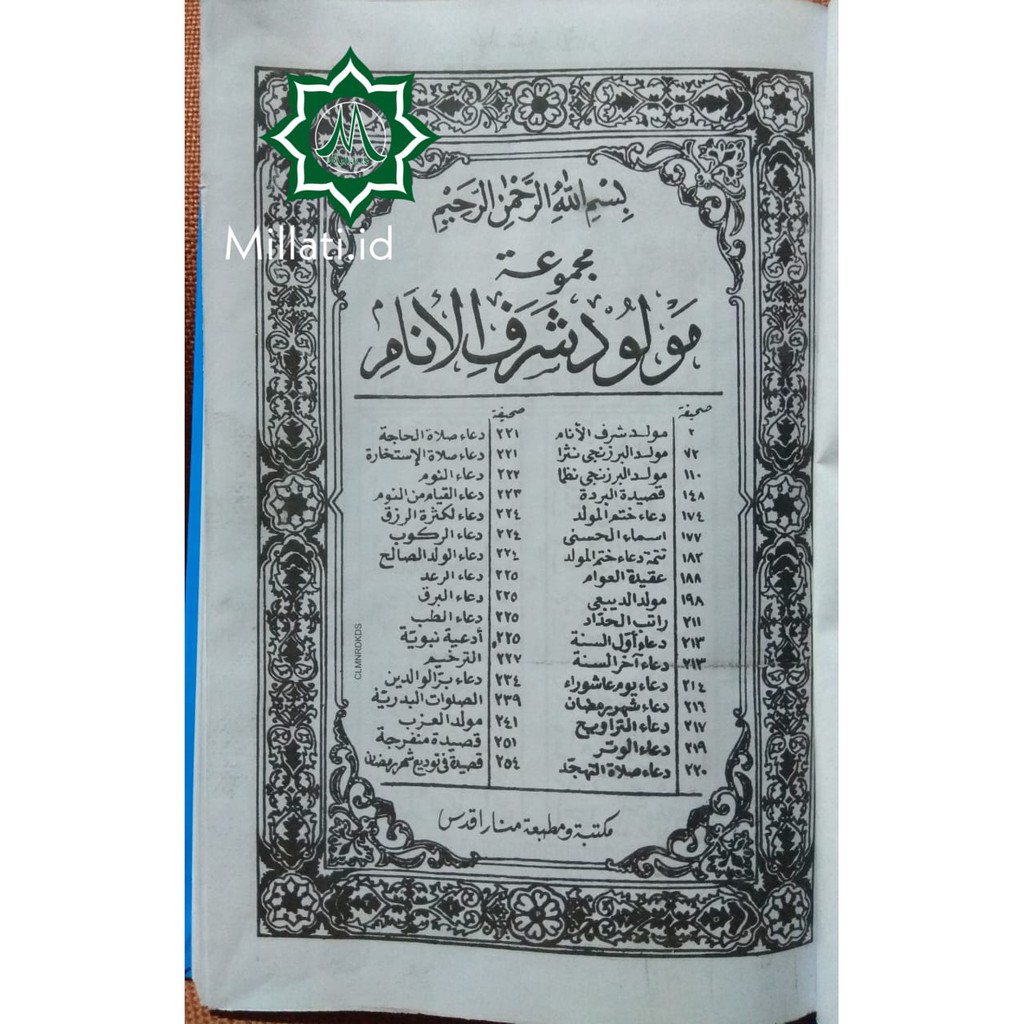 Millati.id
بِسْمِ اللهِ الرَّحْمٰنِ الرَّحِيْمِ
مجموعة
مَوْلُودْ شَرَفِ الْأَنَامِ
صحيفة
٢ مولد شرف الأنام
٧٢ مولد البرزنجي نثرا
١١٠ مولد البرزنجي نظما
١٤٨ قصيدة البردة
١٧٤ دعاء ختم المولد
١٧٧ اسماء الحسنى
١٨٢ تتمة دعاء ختم المولد
١٨٨ عقيدة العوام
١٩٨ مولد الديبعي
٢١١ راتب الحدّاد
٢١٣ دعاء أوّل السنة
٢١٣ دعاء آخر السنة
٢١٤ دعاء يوم عاشوراء
٢١٦ دعاء شهر رمضان
٢١٧ دعاء التراويح
٢١٩ دعاء الوتر
٢٢٠ دعاء صلاة التهجّد
صحيفة
٢٢١ دعاء صلاة الحاجة
٢٢١ دعاء صلاة الإستخارة
٢٢٢ دعاء النوم
٢٢٣ دعاء القيام من النوم
٢٢٤ دعاء لكثرة الرزق
٢٢٤ دعاء الركوب
٢٢٤ دعاء الولد الصالح
٢٢٥ دعاء الرعد
٢٢٥ دعاء البرق
٢٢٥ دعاء الطب
٢٢٥ أدعية نبويّة
٢٢٧ الترخيم
٢٣٤ دعاء برّ الوالدين
٢٣٩ الصلوات البدريّة
٢٤١ مولد العزب
٢٥١ قصيدة منفرجة
٢٥٤ قصيدة في توديع شهر رمضان
مكتبة ومطبعة منارا قدس
CLMNRDKDS